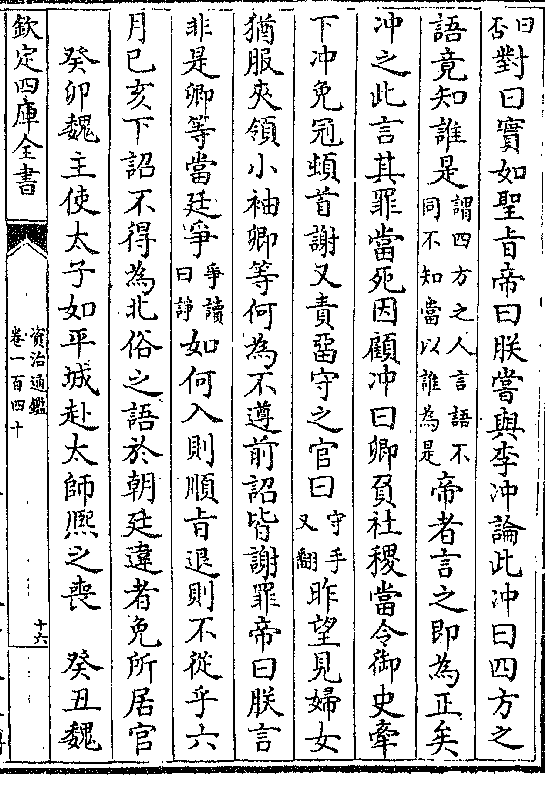 曰否對曰實如聖㫖帝曰朕嘗與李沖論此沖曰四方之
語竟知誰是謂四方之人言語不同不知當以誰為是帝者言之即為正矣
沖之此言其罪當死因顧沖曰卿負社稷當令御史牽
下沖免冠頓首謝又責留守之官曰守手又翻昨望見婦女
猶服夾領小袖卿等何為不遵前詔皆謝罪帝曰朕言
非是卿等當廷爭爭讀曰諍如何入則順㫖退則不從乎六
月巳亥下詔不得為北俗之語於朝廷違者免所居官
癸卯魏主使太子如平城赴太師熈之喪 癸丑魏
欽定四庫全書
資治通鑑
卷一百四十
十六